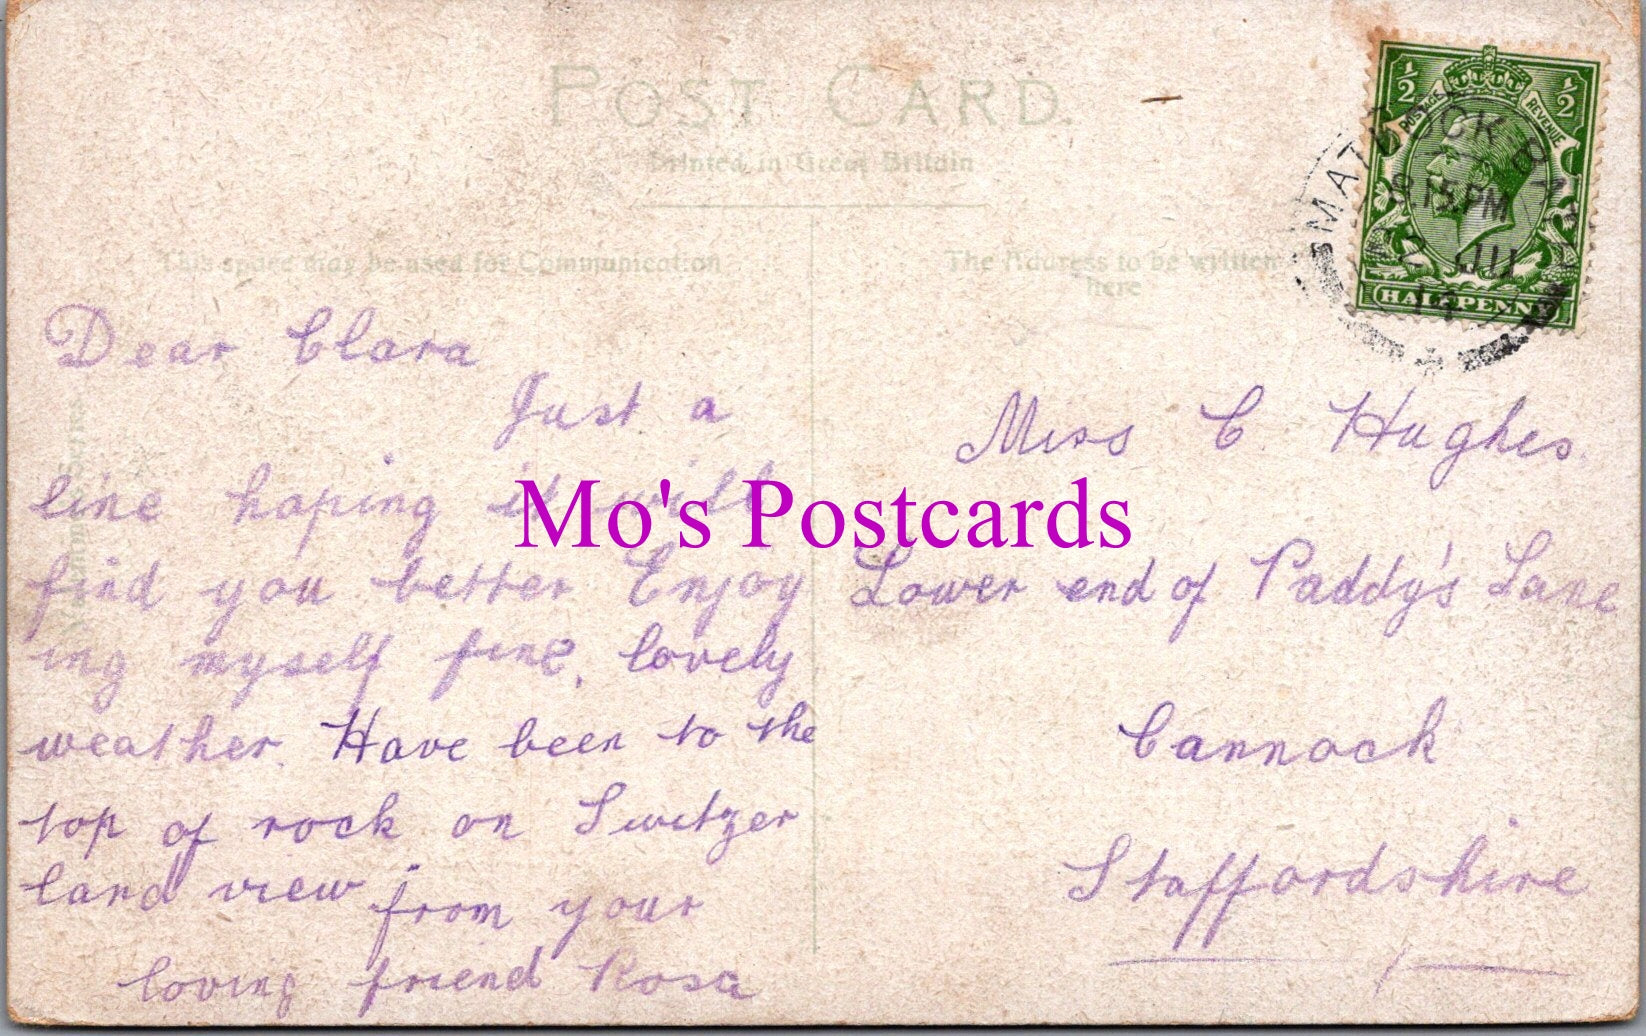 POST CARD.
Printed in Great Britain
This space may be used for Communication
The Address to be written
here
½ ½
POSTAGE REVENUE
HALFPENNY
MATLOCK BATH
8.15 PM
2 JU
Dear Clara
Just a
line hoping it will
find you better Enjoy
ing myself fine, lovely
weather. Have been to the
top of rock on Switzer
land view from your
loving friend Rosa
Miss C. Hughes.
Lower end of Paddy's Lane
Cannock
Staffordshire
Mo's Postcards